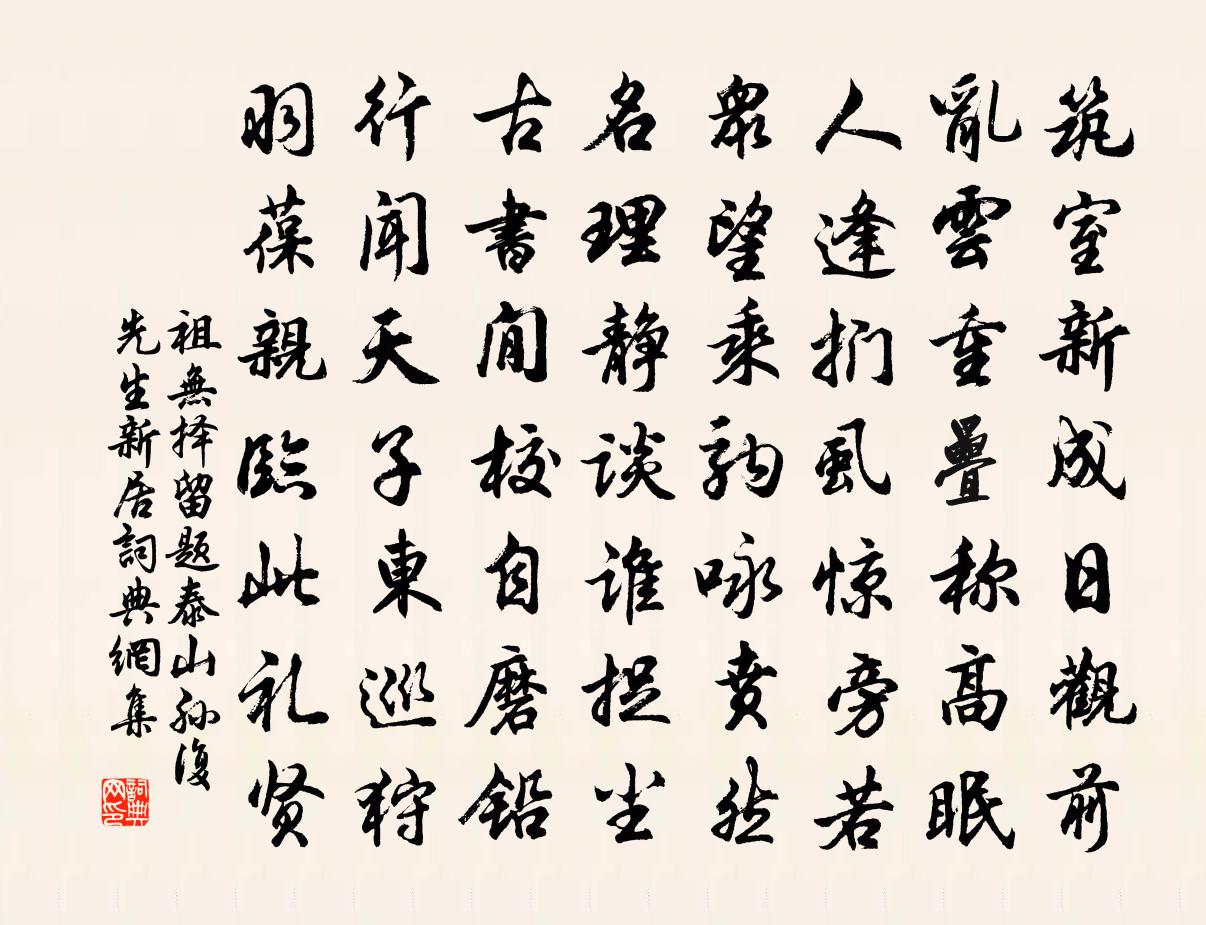 筑室新成日觀前
亂雲重疊称高眠
人逢捫虱惊旁若
眾望乘軥咏賁然
名理静談谁捉尘
古書閒校自磨铅
行聞天子東巡狩
羽葆親臨此礼贤
祖無择留题泰山孙復
先生新居詞典網集
詞典
网印